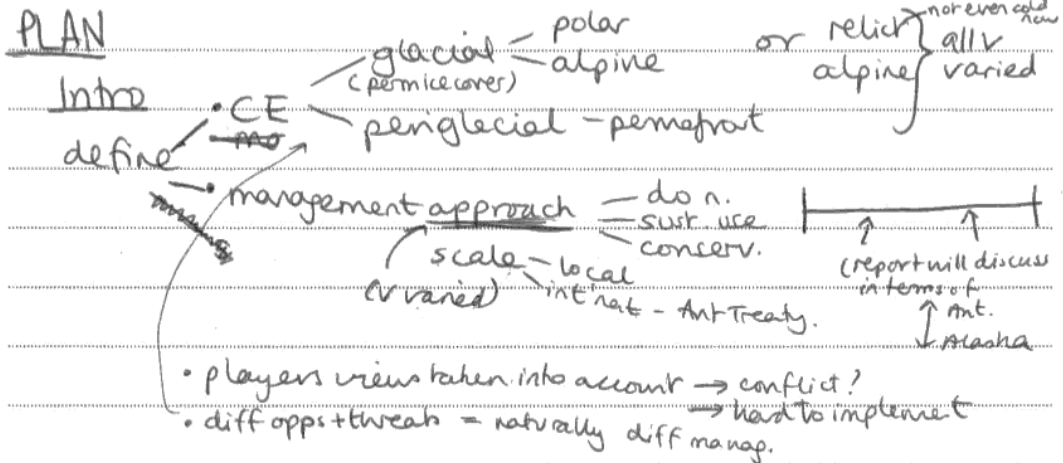 PLAN
Intro
define
• CE
glacial
(perm ice cover)
polar
alpine
periglacial - permafrost
or relict
alpine
not even cold now
all v
varied
• management approach
do n.
sust. use
conserv.
scale
(v varied)
local
int'nat - Ant Treaty.
(report will discuss
in terms of
Ant.
Alaska
• players views taken into account → conflict?
→ hard to implement
• diff opps + threats = naturally diff manag.